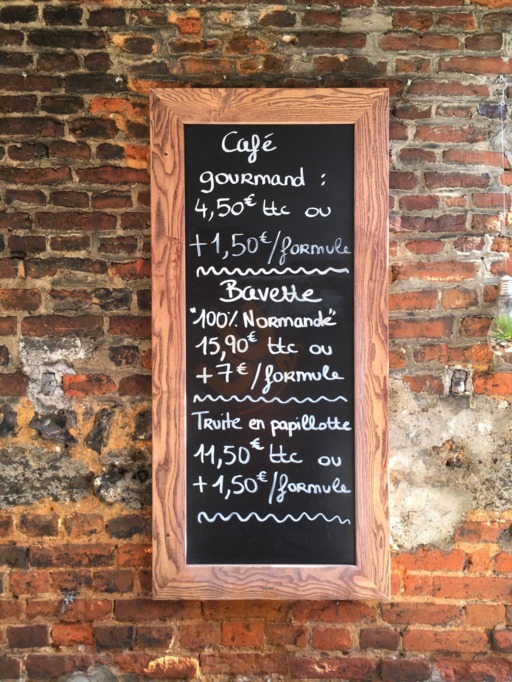 Café
gourmand :
4,50€ ttc ou
+1,50€/formule
Bavette
"100% Normande"
15,90€ ttc ou
+7€/formule
Truite en papillotte
11,50€ ttc ou
+1,50€/formule